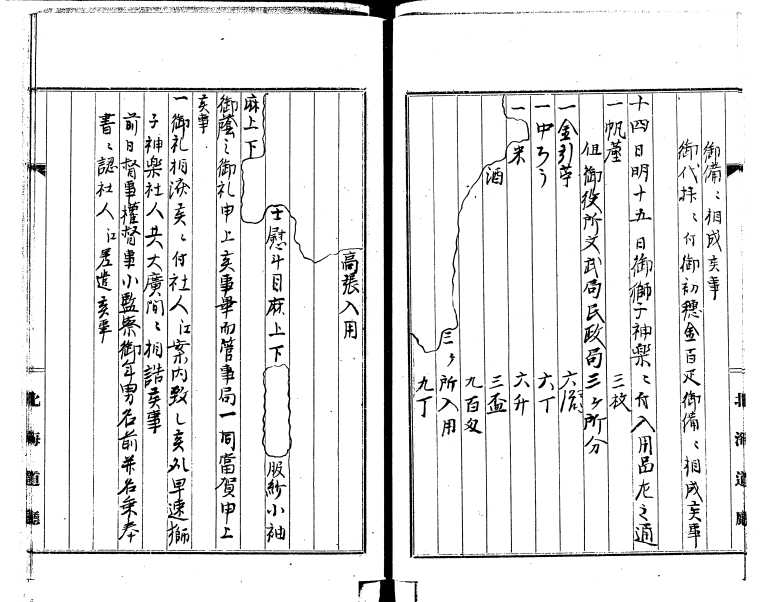 御備ニ相成亥事
御代拝ニ付御初穂金百疋御備ニ相成亥事
十四日明十五日御獅子神楽ニ付入用品左之通
一帆莚 三枚
但御役所文武局民政局三ヶ所分
一金引苧 六
一中ろう 六丁
一米 六升
酒 三盃
九百匁
三ヶ所入用
九丁
高張入用
士慰斗目麻上下 服紗小袖
麻上下
御蔭之御礼申上亥事畢而管事局一同當賀申上
亥事
一御礼相済亥ニ付社人江案内致し亥処早速獅
子神楽社人共大廣間ニ相詰亥事
前日督事權督事小監察御年男名前并名乗奉
書ニ認社人江差遣亥事
北海道廳
北海道廳